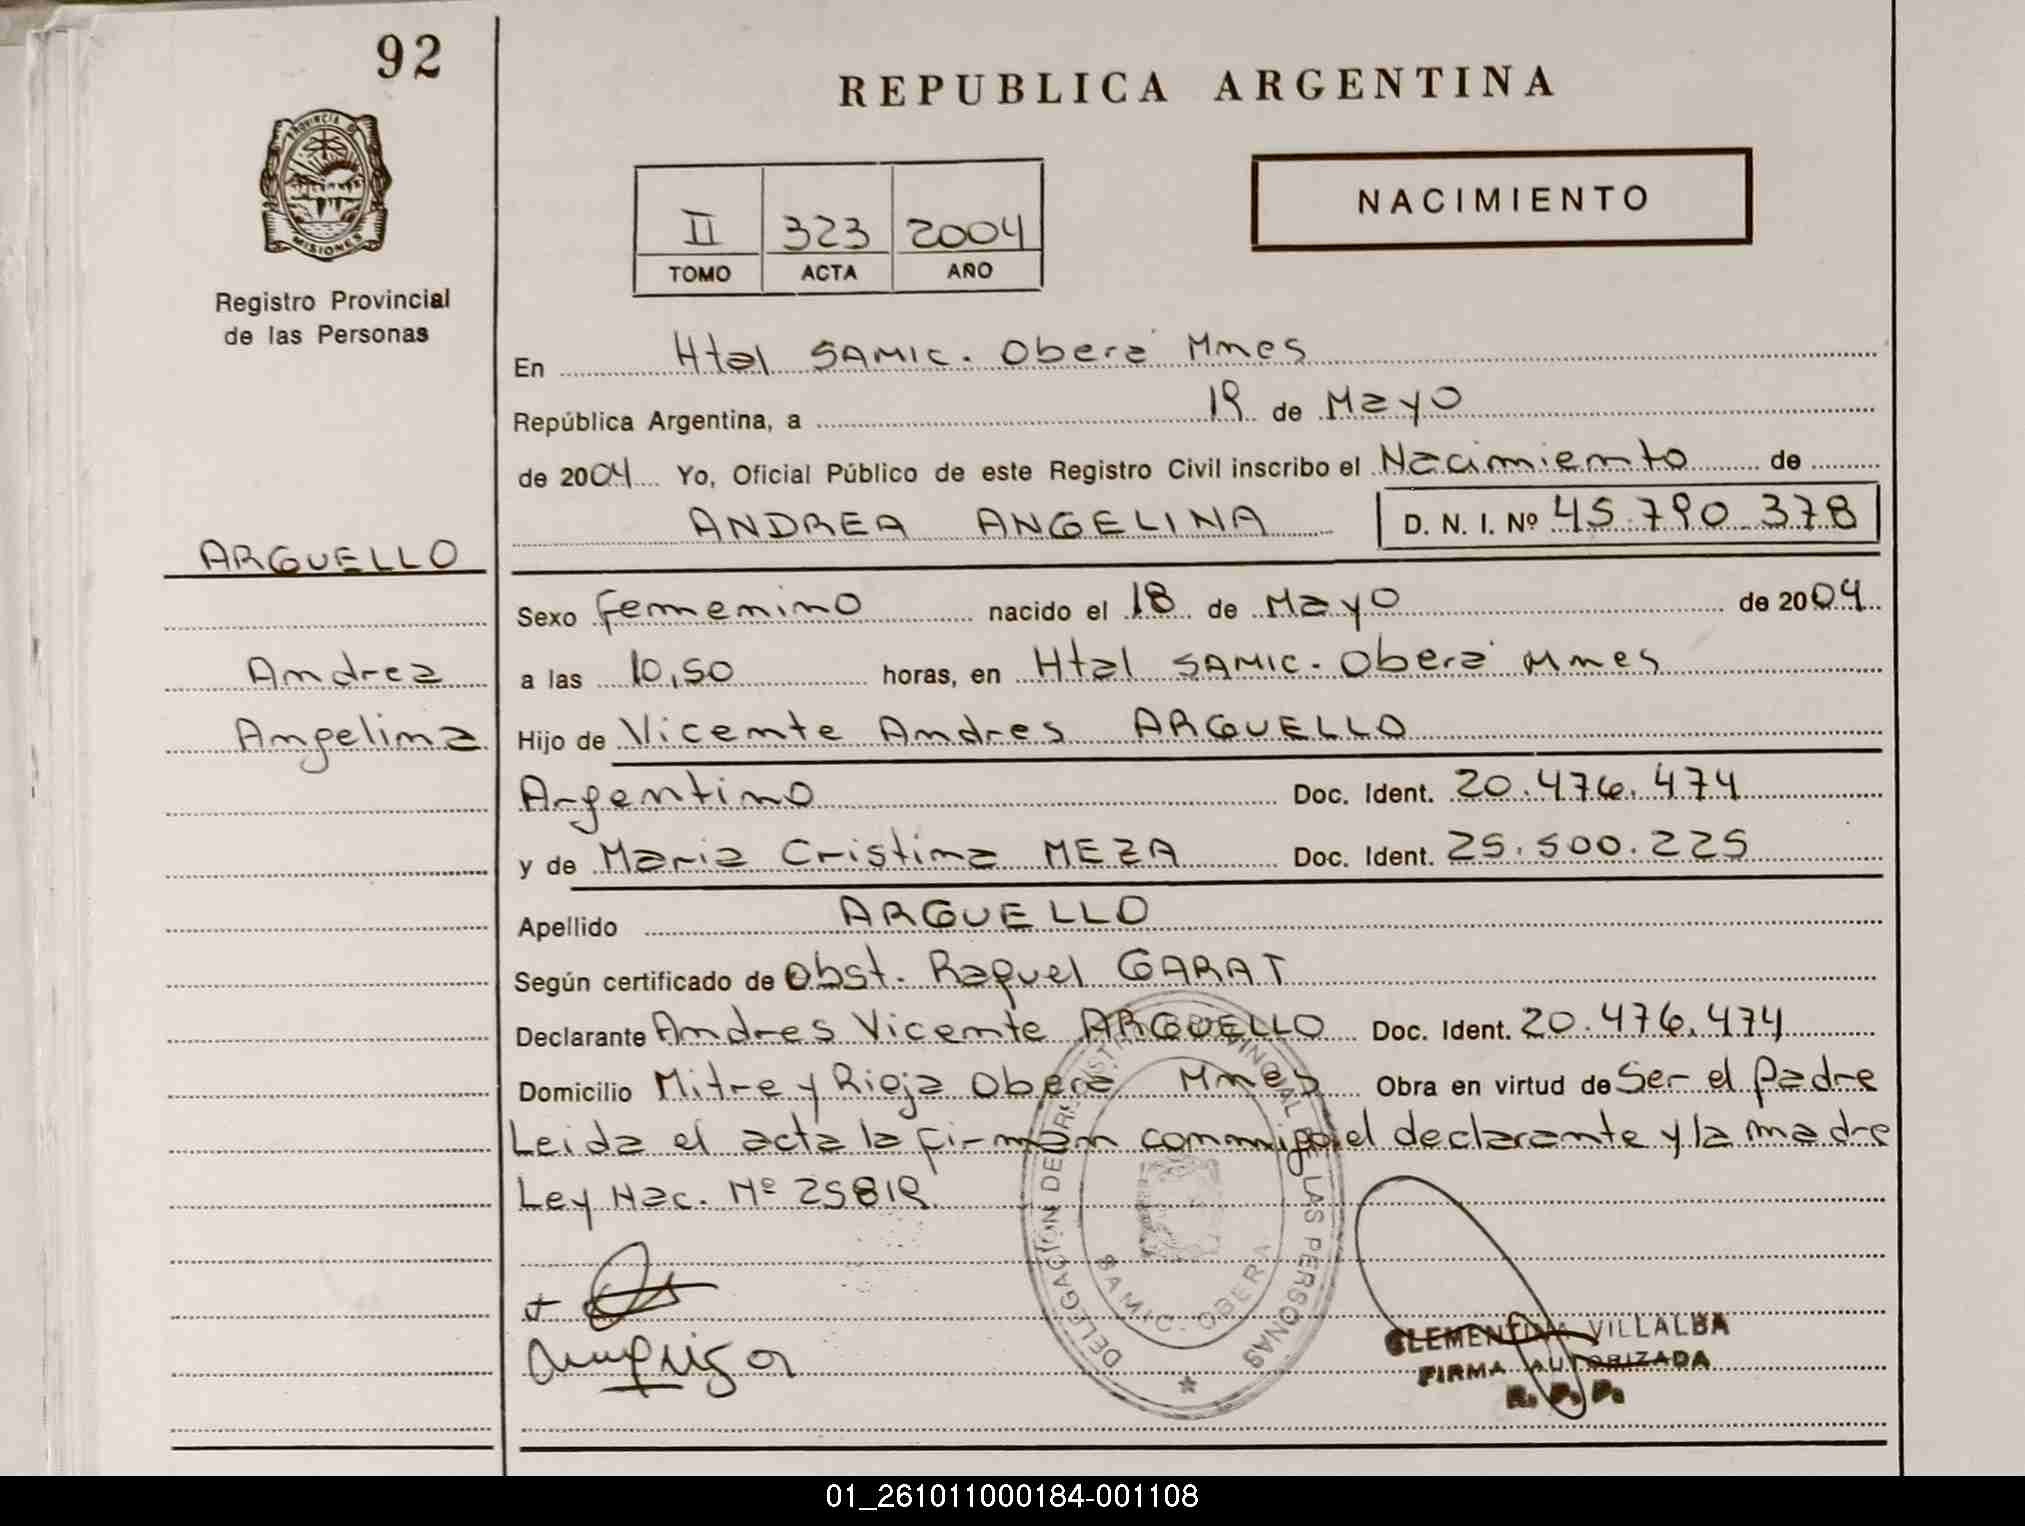 92
REPUBLICA ARGENTINA
PROVINCIA DE
MISIONES
Registro Provincial
de las Personas
II 323 2004
TOMO ACTA AÑO
NACIMIENTO
En Htal SAMIC. Oberá Mnes
República Argentina, a 19 de Mayo
de 2004 Yo, Oficial Público de este Registro Civil inscribo el Nacimiento de
ANDREA ANGELINA D. N. I. Nº 45.790.378
ARGUELLO
Sexo femenino nacido el 18 de Mayo de 2004
Andrea
a las 10,50 horas, en Htal SAMIC. Oberá Mnes
Angelina
Hijo de Vicente Andres ARGUELLO
Argentino Doc. Ident. 20.476.474
y de Maria Cristina MEZA Doc. Ident. 25.500.225
Apellido ARGUELLO
Según certificado de Obst. Raquel GARAT
Declarante Andres Vicente ARGUELLO Doc. Ident. 20.476.474
Domicilio Mitre y Rioja Oberá Mnes Obra en virtud de Ser el padre
Leida el acta la firman conmigo el declarante y la madre
Ley Nac. Nº 25819
DELEGACION DE REGISTRO PROVINCIAL DE LAS PERSONAS
SAMIC. OBERA
CLEMENTINA VILLALBA
FIRMA AUTORIZADA
R. P. P.
01_261011000184-001108